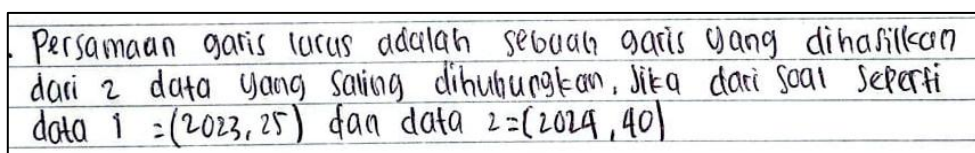 . Persamaan garis lurus adalah sebuah garis yang dihasilkan
dari 2 data yang saling dihubungkan. Jika dari soal seperti
data 1 = (2023, 25) dan data 2 = (2024, 40)